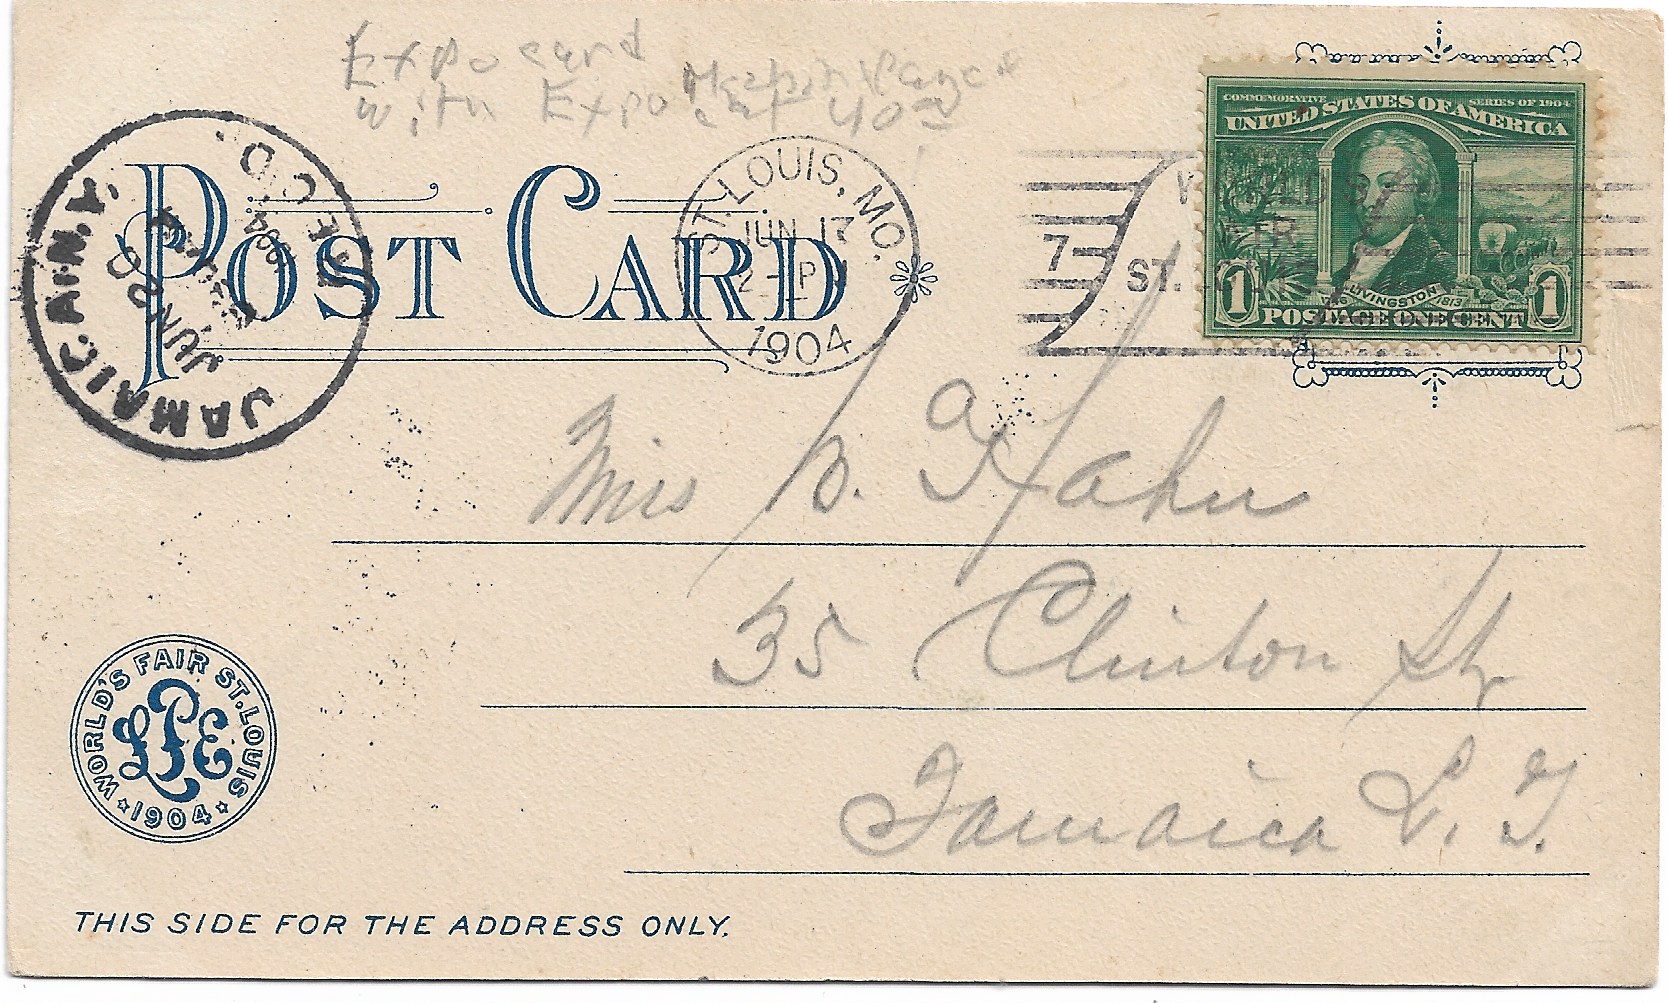 Expo card
with Expo
COMMEMORATIVE SERIES OF 1904
UNITED STATES OF AMERICA
LIVINGSTON
1813
1 POSTAGE ONE CENT 1
POST CARD
JAMAICA, N.Y.
REC'D.
1904
JUN 20
ST. LOUIS, MO.
JUN 17
2 - P
1904
7
WORLD'S
FAIR
ST. LOUIS
Miss B. Hahn
35 Clinton St
Jamaica L. I.
WORLD'S FAIR ST. LOUIS
LPE
1904
THIS SIDE FOR THE ADDRESS ONLY.